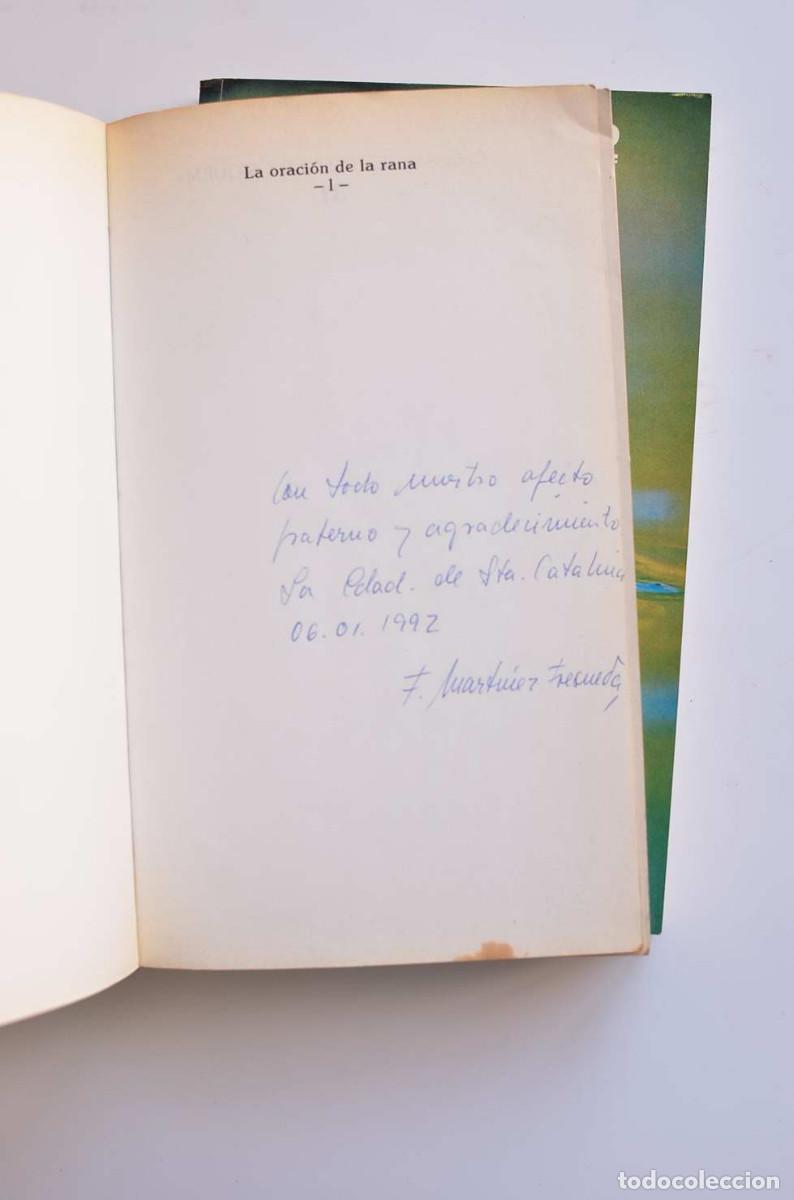 La oración de la rana
– 1 –
Con todo nuestro afecto
fraterno y agradecimiento
La Cdad. de Sta. Catalina
06.01.1992
F. Martínez Fresneda
todocoleccion